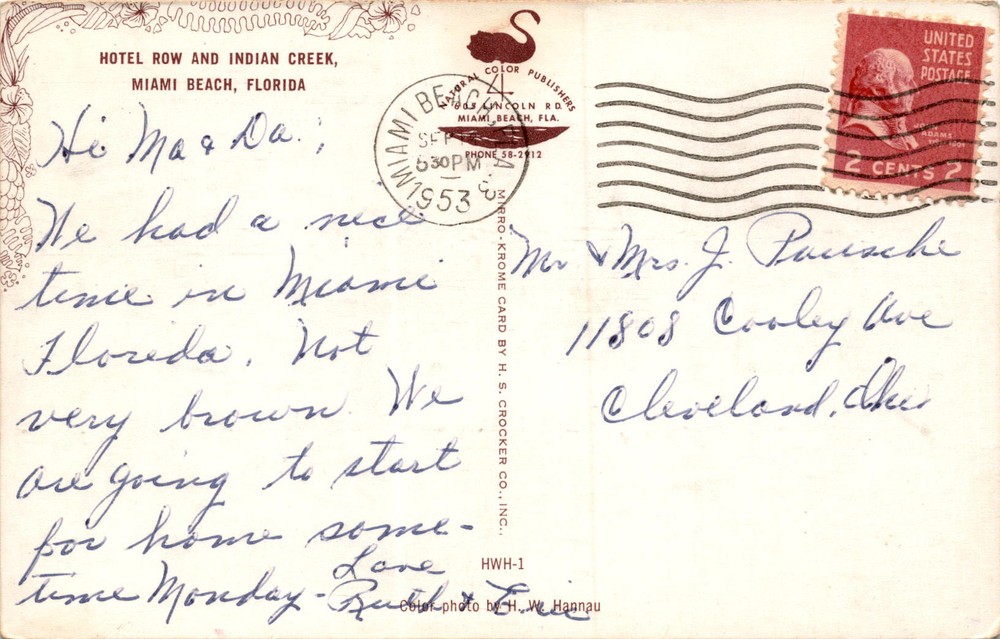 HOTEL ROW AND INDIAN CREEK,
MIAMI BEACH, FLORIDA
Hi Ma & Da.,
We had a nice
time in Miami
Florida. Not
very brown. We
are going to start
for home some-
time Monday-
Love
Ruth & Eric
NATURAL COLOR PUBLISHERS
605 LINCOLN RD.
MIAMI BEACH, FLA.
PHONE 58-2912
MIAMI BEACH, FLA. 3
SEP
630PM
1953
MIRRO-KROME CARD BY H. S. CROCKER CO., INC.,
HWH-1
Color photo by H. W. Hannau
UNITED
STATES
POSTAGE
JOHN
ADAMS
2 CENTS 2
Mr & Mrs. J. Pausche
11808 Cooley Ave
Cleveland, Ohio